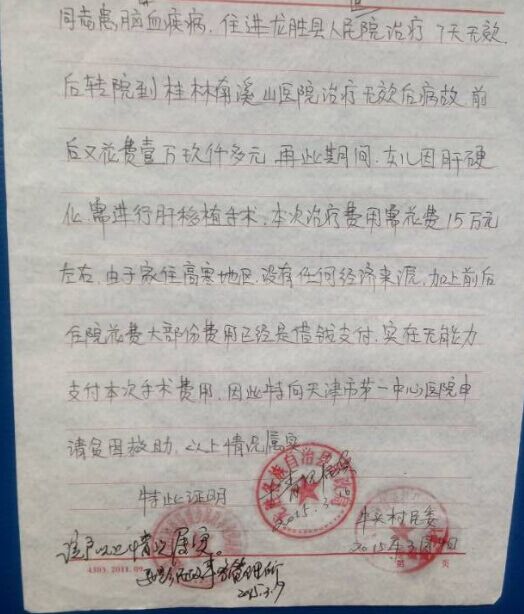 同志患脑血疾病，住进龙胜县人民院治疗7天无效.
后转院到桂林南溪山医院治疗无效后病故.前
后又花费壹万玖仟多元.再此期间.女儿因肝硬
化.需进行肝移植手术.本次治疗费用需花费15万元
左右.由于家住高寒地区.没有任何经济来源.加上前后
住院花费大部份费用已经是借钱支付.实在无能力
支付本次手术费用.因此特向天津市第一中心医院申
请贫困救助.以上情况属实.
特此证明
情况属实
2015.3.16
村民委
2015年3月
该户以上情况属实。
2015.3.17
4303.2011.09
第 页